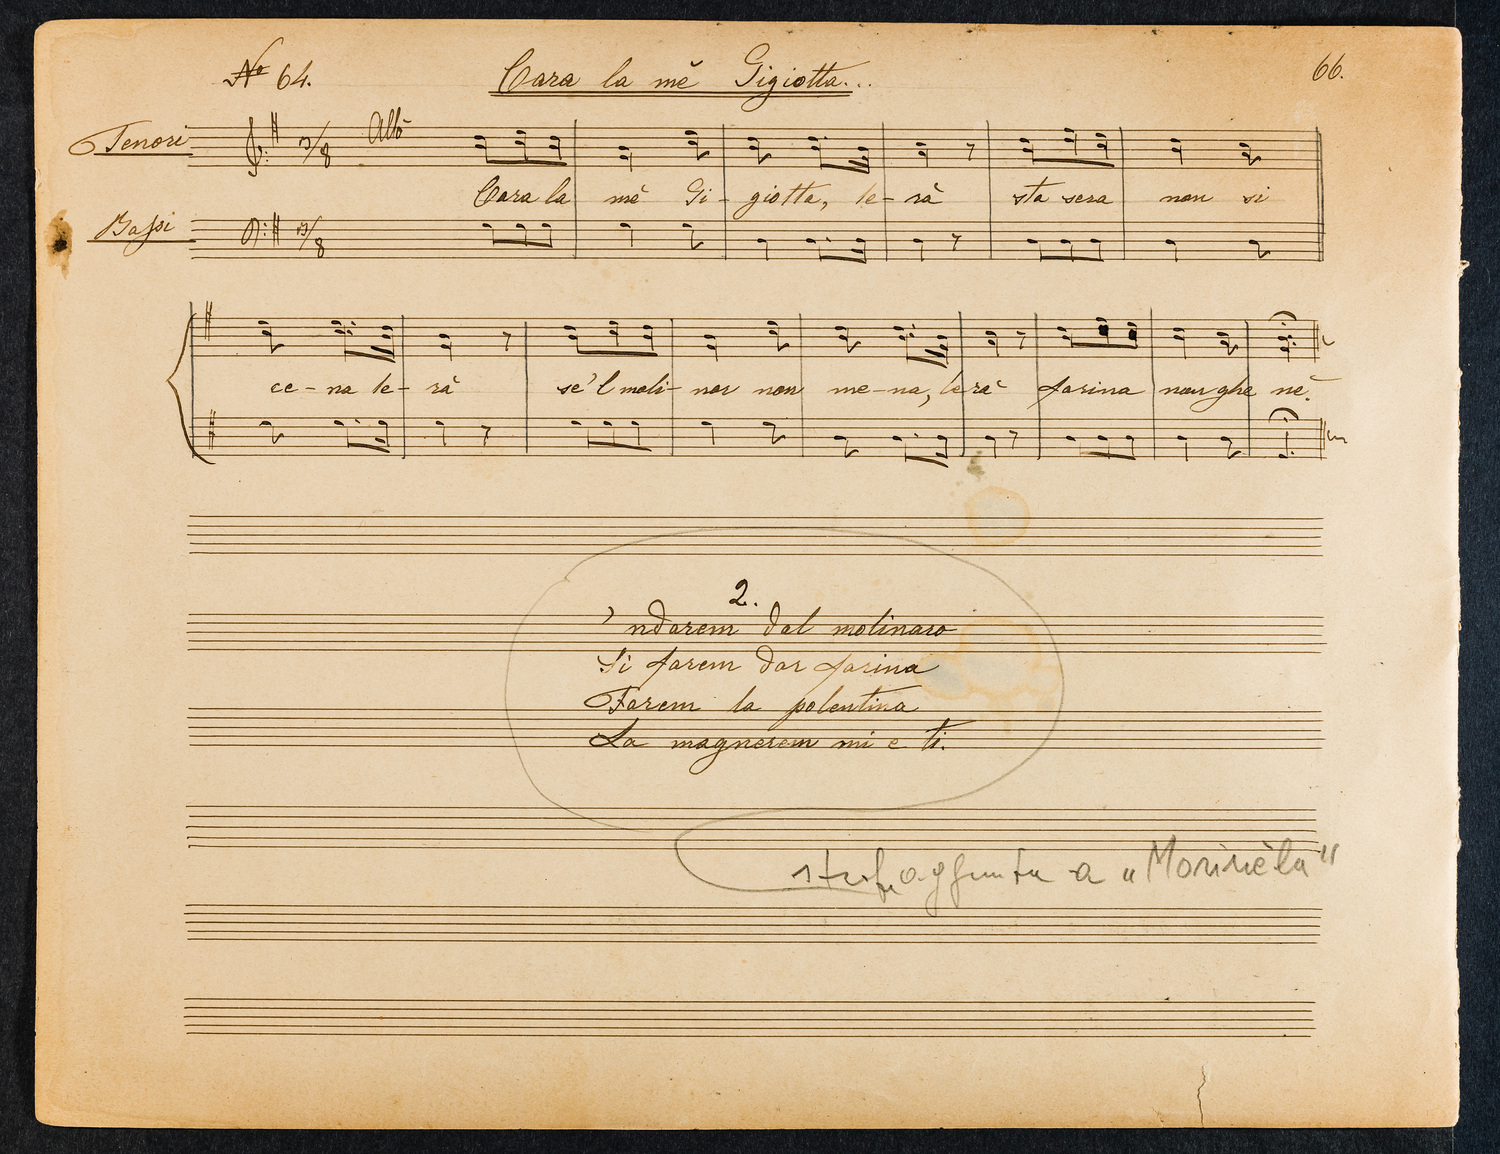 No 64.
Cara la mè Gigiotta...
66.
Tenori
3/8
Allo
Cara la mè Gi- giotta, le- rà sta sera non si
Bassi
3/8
ce- na le- rà se'l moli- nar non me-na, lerà farina non ghe nè.
2.
'ndarem dal molinaro
Si farem dar farina
Farem la polentina
La magnerem mi e ti.
strof. aggiunta a „Morinèla"